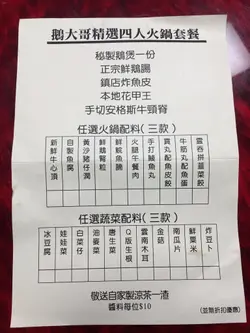 鵝大哥精選四人火鍋套餐
秘製鵝煲一份
正宗鮮鵝腸
鎮店炸魚皮
本地花甲王
手切安格斯牛頸脊
任選火鍋配料(三款)
新鮮牛心頂
自製魚腐
黃沙豬仔潤
鮮鵝腎粒
鮮鯇魚腩
火腿午餐肉
手打鯪魚丸
貢丸配魚皮餃
牛筋丸配蛋餃
雲吞拼韮菜餃
任選蔬菜配料(三款)
冰豆腐
娃娃菜
白菜仔
油麥菜
唐生菜
Q版生根
雲南木耳
金菇
南瓜片
鮮粟米
炸豆卜
敬送自家製涼茶一渣
醬料每位$10
(並無折扣優惠)